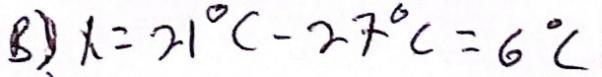 B) x = 21°C - 27°C = 6°C